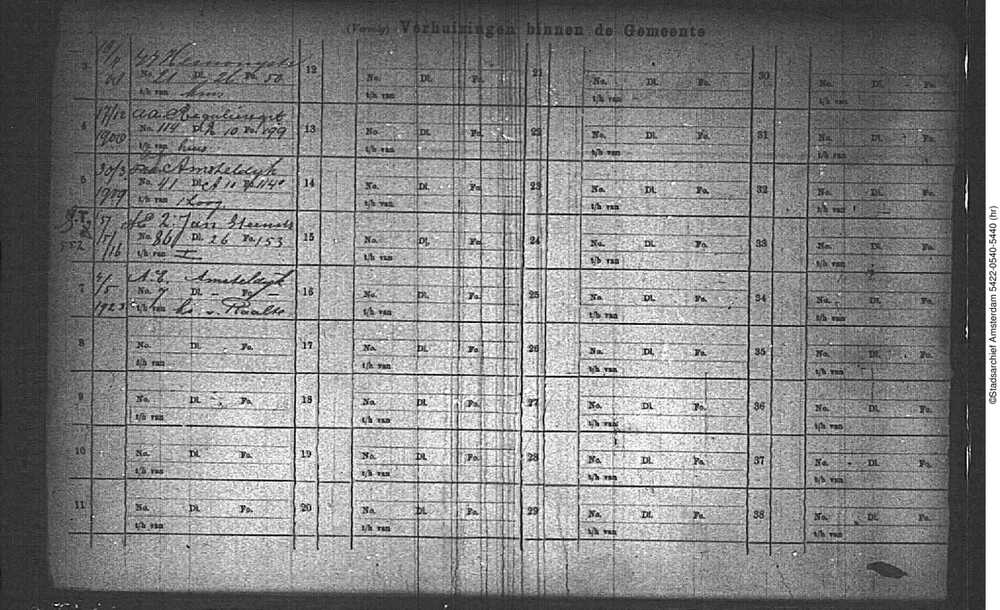 (Vervolg) Verhuizingen binnen de Gemeente
3
No. 21 Dl. 26 Fo. 50
t/h van
4 17/12 1900
No. 114 Dl. 10 Fo. 199
t/h van huis
5 30/3 1909 Amsteldijk
No. 41 Dl. 11 Fo. 114
t/h van
6 Jan Steenstr
No. 86 Dl. 26 Fo. 153
t/h van I
7 2/5 1923 A.E. Amsteldijk
No. 7 Dl. - Fo. -
t/h van v. Raalte
8
No. Dl. Fo.
t/h van
9
No. Dl. Fo.
t/h van
10
No. Dl. Fo.
t/h van
11
No. Dl. Fo.
t/h van
12
No. Dl. Fo.
t/h van
13
No. Dl. Fo.
t/h van
14
No. Dl. Fo.
t/h van
15
No. Dl. Fo.
t/h van
16
No. Dl. Fo.
t/h van
17
No. Dl. Fo.
t/h van
18
No. Dl. Fo.
t/h van
19
No. Dl. Fo.
t/h van
20
No. Dl. Fo.
t/h van
21
No. Dl. Fo.
t/h van
22
No. Dl. Fo.
t/h van
23
No. Dl. Fo.
t/h van
24
No. Dl. Fo.
t/h van
25
No. Dl. Fo.
t/h van
26
No. Dl. Fo.
t/h van
27
No. Dl. Fo.
t/h van
28
No. Dl. Fo.
t/h van
29
No. Dl. Fo.
t/h van
30
No. Dl. Fo.
t/h van
31
No. Dl. Fo.
t/h van
32
No. Dl. Fo.
t/h van
33
No. Dl. Fo.
t/h van
34
No. Dl. Fo.
t/h van
35
No. Dl. Fo.
t/h van
36
No. Dl. Fo.
t/h van
37
No. Dl. Fo.
t/h van
38
No. Dl. Fo.
t/h van
©Stadsarchief Amsterdam 5422-0540-5440 (hr)